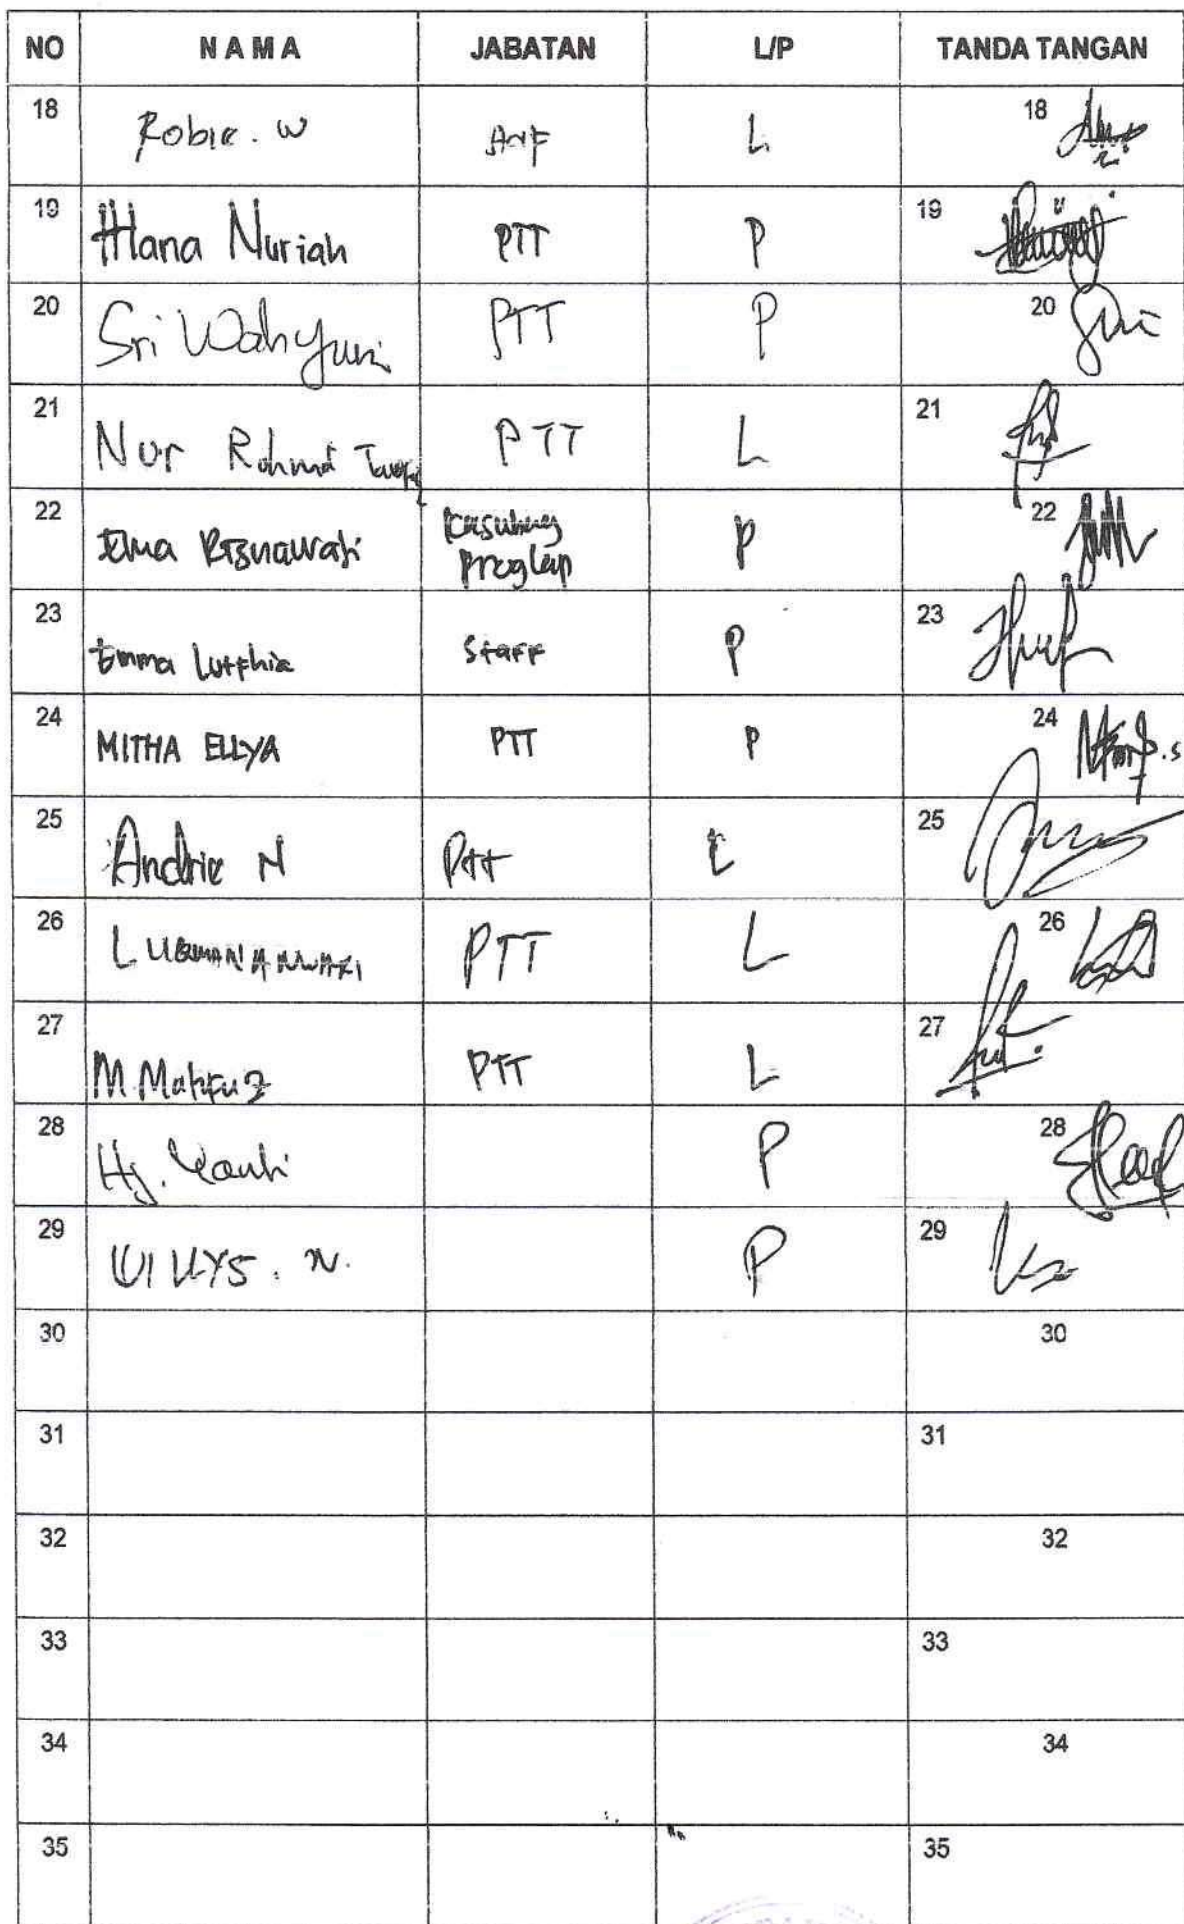 NO NAMA JABATAN L/P TANDA TANGAN
18 Robie. W L 18
19 Hana Nuriah PTT P 19
20 Sri Wahyuni PTT P 20
21 Nur Rohmat PTT L 21
22 Risnawati Kasubag P 22
Proglap
23 Emma Lutfhia Staff P 23
24 MITHA ELLYA PTT P 24
25 Andrie N Ptt L 25
26 LUQMAN ANWARI PTT L 26
27 M Mahfuz PTT L 27
28 Hj. Yanti P 28
29 WILLYS. N. P 29
30 30
31 31
32 32
33 33
34 34
35 35